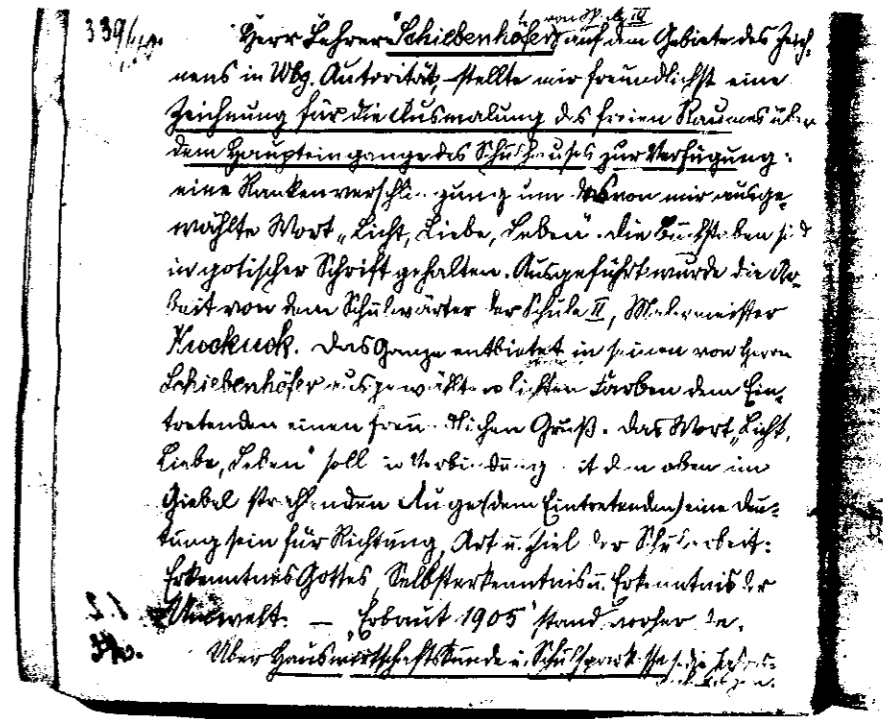 339
von Sch. IV
Herr Lehrer Schiebenhöfer, auf dem Gebiete des Zeich-
nens in Wbg. Autorität, stellte mir freundlichst eine
Zeichnung für die Ausmalung des freien Raumes über
dem Haupteingange des Schulhauses zur Verfügung:
eine Rankenverschlingung um das von mir ausge-
wählte Wort „Licht, Liebe, Leben". Die Buchstaben sind
in gotischer Schrift gehalten. Ausgeführt wurde die Ar-
beit von dem Schulwärter der Schule II, Malermeister
Kuckuck. Das Ganze entbietet in seinen von Herrn
Schiebenhöfer ausgewählten lichten Farben dem Ein-
tretenden einen freundlichen Gruß. Das Wort „Licht,
Liebe, Leben" soll in Verbindung mit dem oben im
Giebel strahlenden Auge (dem Eintretenden) eine Deu-
tung sein für Richtung, Art u. Ziel der Schularbeit:
Erkenntnis Gottes, Selbsterkenntnis u. Erkenntnis der
Umwelt. — „Erbaut 1905" stand vorher da.
Über Hauswirtschaftskunde u. Schulsparkasse s. die